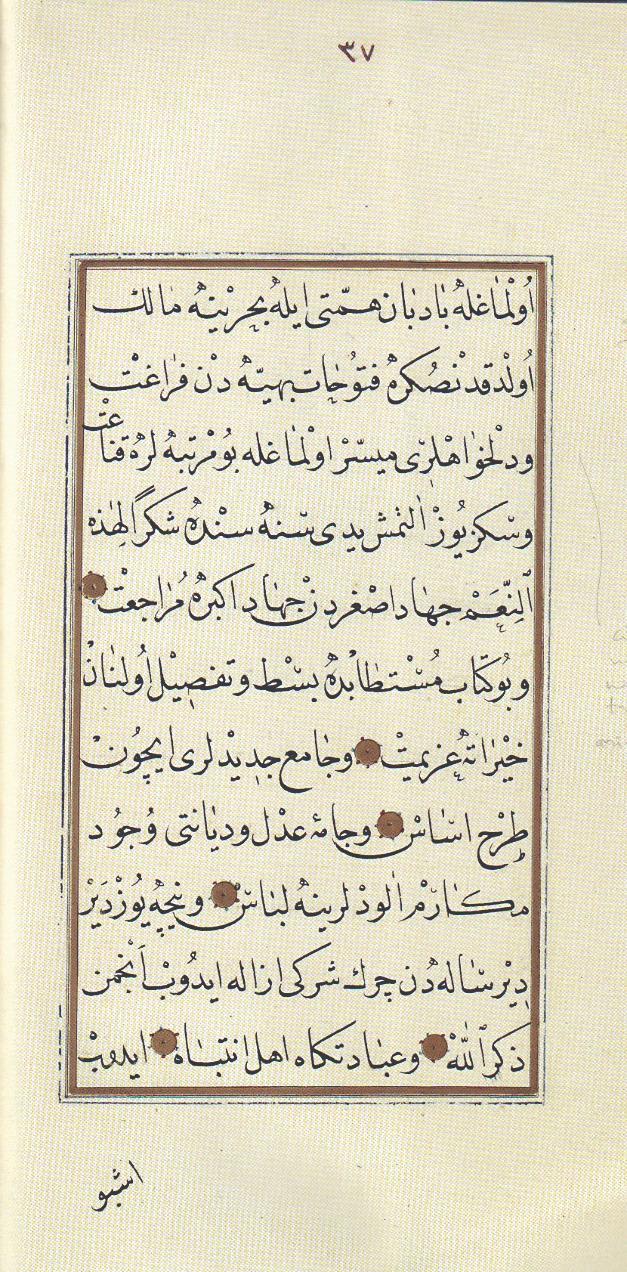 ٣٧
اُولْمَاغله بَادبَان همّتى ايلهٔ بحريْنهٔ مَالك
اُولْدقدْنصُكرهٔ فتوُحَات بهيّهٔ دنْ فرَاغتْ
ودلْخوَاهْلرى ميسّرْ اولْمَاغله بوُمرْتبهٔ لرهٔ قناعتْ
وسكزيوُزْ التمش يدى سنهٔ سندهٔ شكرًا لِهٰذه
اَلنِّعَمْ جهَاد اصْغردنْ جهَاد اكبرهٔ مُرَاجعتْ
وبوُكتَاب مُسْتطَابدهٔ بسْط وتفصيْل اُولنَانْ
خيْرَاتهٔ عزيمتْ وجَامع جديدْلرى ايچوُنْ
طرْح اسَاسْ وجامهٔ عدْل ودِيَانتى وُجوُد
مكَارمْ اٰلودْلرينهٔ لبَاسْ ونيچهٔ يوُزْدَيْر
دِيْرسَاله دُن چرك شركى ازاله ايدوُبْ اَنْجمن
ذكرْ اللّٰهْ وعبَادتكاه اهل انتبَاهْ ايدوبْ
اشبو